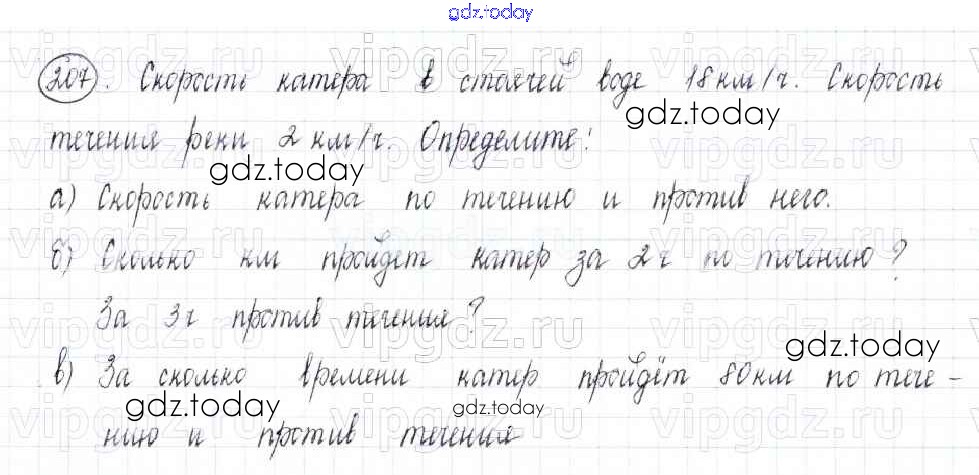 gdz.today
207. Скорость катера в стоячей воде 18 км/ч. Скорость
gdz.today
течения реки 2 км/ч. Определите:
gdz.today
а) Скорость катера по течению и против него.
б) Сколько км пройдет катер за 2 ч по течению?
За 3 ч против течения?
gdz.today
в) За сколько времени катер пройдёт 80 км по тече-
gdz.today
gdz.today
нию и против течения
vipgdz.ru
vipgdz.ru
vipgdz.ru
vipgdz.ru
vipgdz.ru
vipgdz.ru